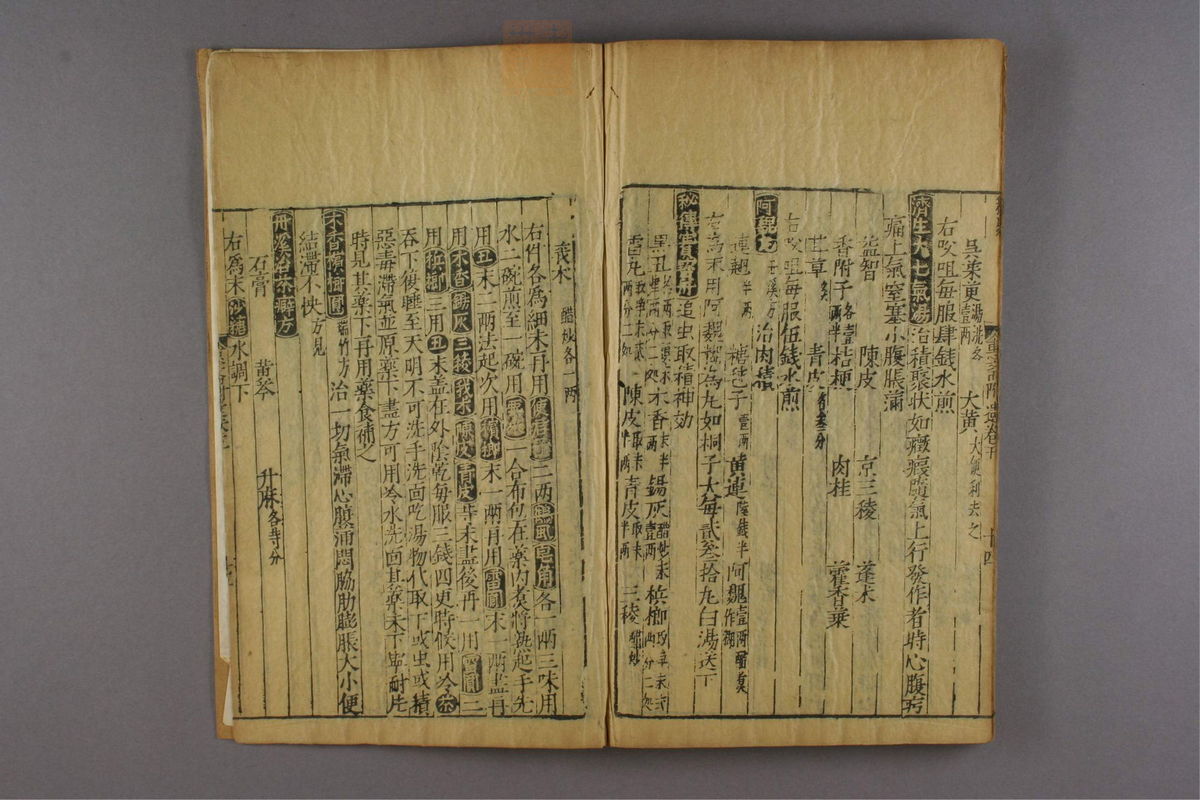 吳茱萸湯洗各壹兩 大黃大便利去之
右㕮咀每服肆錢水煎
濟生大七氣湯治積聚狀如癥瘕隨氣上行發作者時心腹㽲
痛上氣窒塞小腹脹滿
益智 陳皮 京三稜 蓬朮
香附子各壹兩半 桔梗 肉桂 藿香葉
甘草 青皮各叁分
右㕮咀每服伍錢水煎
阿魏丸丹溪方治肉積
連翹半兩 黃連 阿魏壹兩醋煑作糊
右為末用阿魏糊為丸如桐子大每貳叁拾丸白湯送下
秘傳貴寶丹追虫取積神効
黑丑 木香 錫灰醋炒末壹兩 檳榔
雷丸 陳皮取末半兩 青皮取末半兩 三稜醋炒
莪朮醋炒各一兩
右件各為細末再用使君子二兩 皂角各一兩三味用
水二碗煎至一碗用 一合布包在藥內煑將熟起手先
用丑末二兩法起次用檳榔末一兩再用雷丸末一兩盡再
用木香錫灰三稜莪朮陳皮青皮等末盡後再一用雷丸二
用檳榔三用丑末蓋在外陰乾每服三錢四更時候用冷茶
吞下後睡至天明不可洗手洗面吃湯物代取下或虫或積
惡毒滯氣並原藥下盡方可用冷水洗面其藥未下
時見其藥下再用藥食補之
木香檳榔圓瑞竹方治一切氣滯心腹滿悶脇肋膨脹大小便
結滯不快方見
丹溪治茶癖方
石膏 黃芩 升麻各等分
右為末砂糖水調下